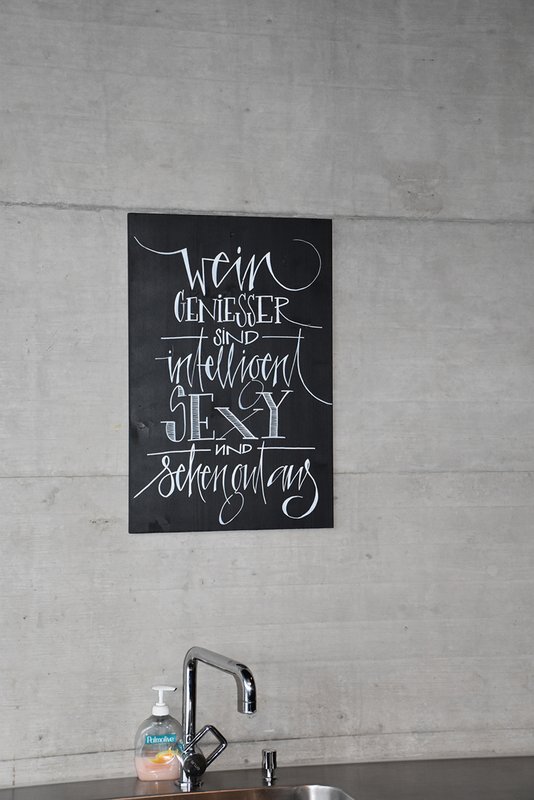 wein
GENiESSER
siND
intelligent
SEXY
UND
sehen gut aus
Palmolive